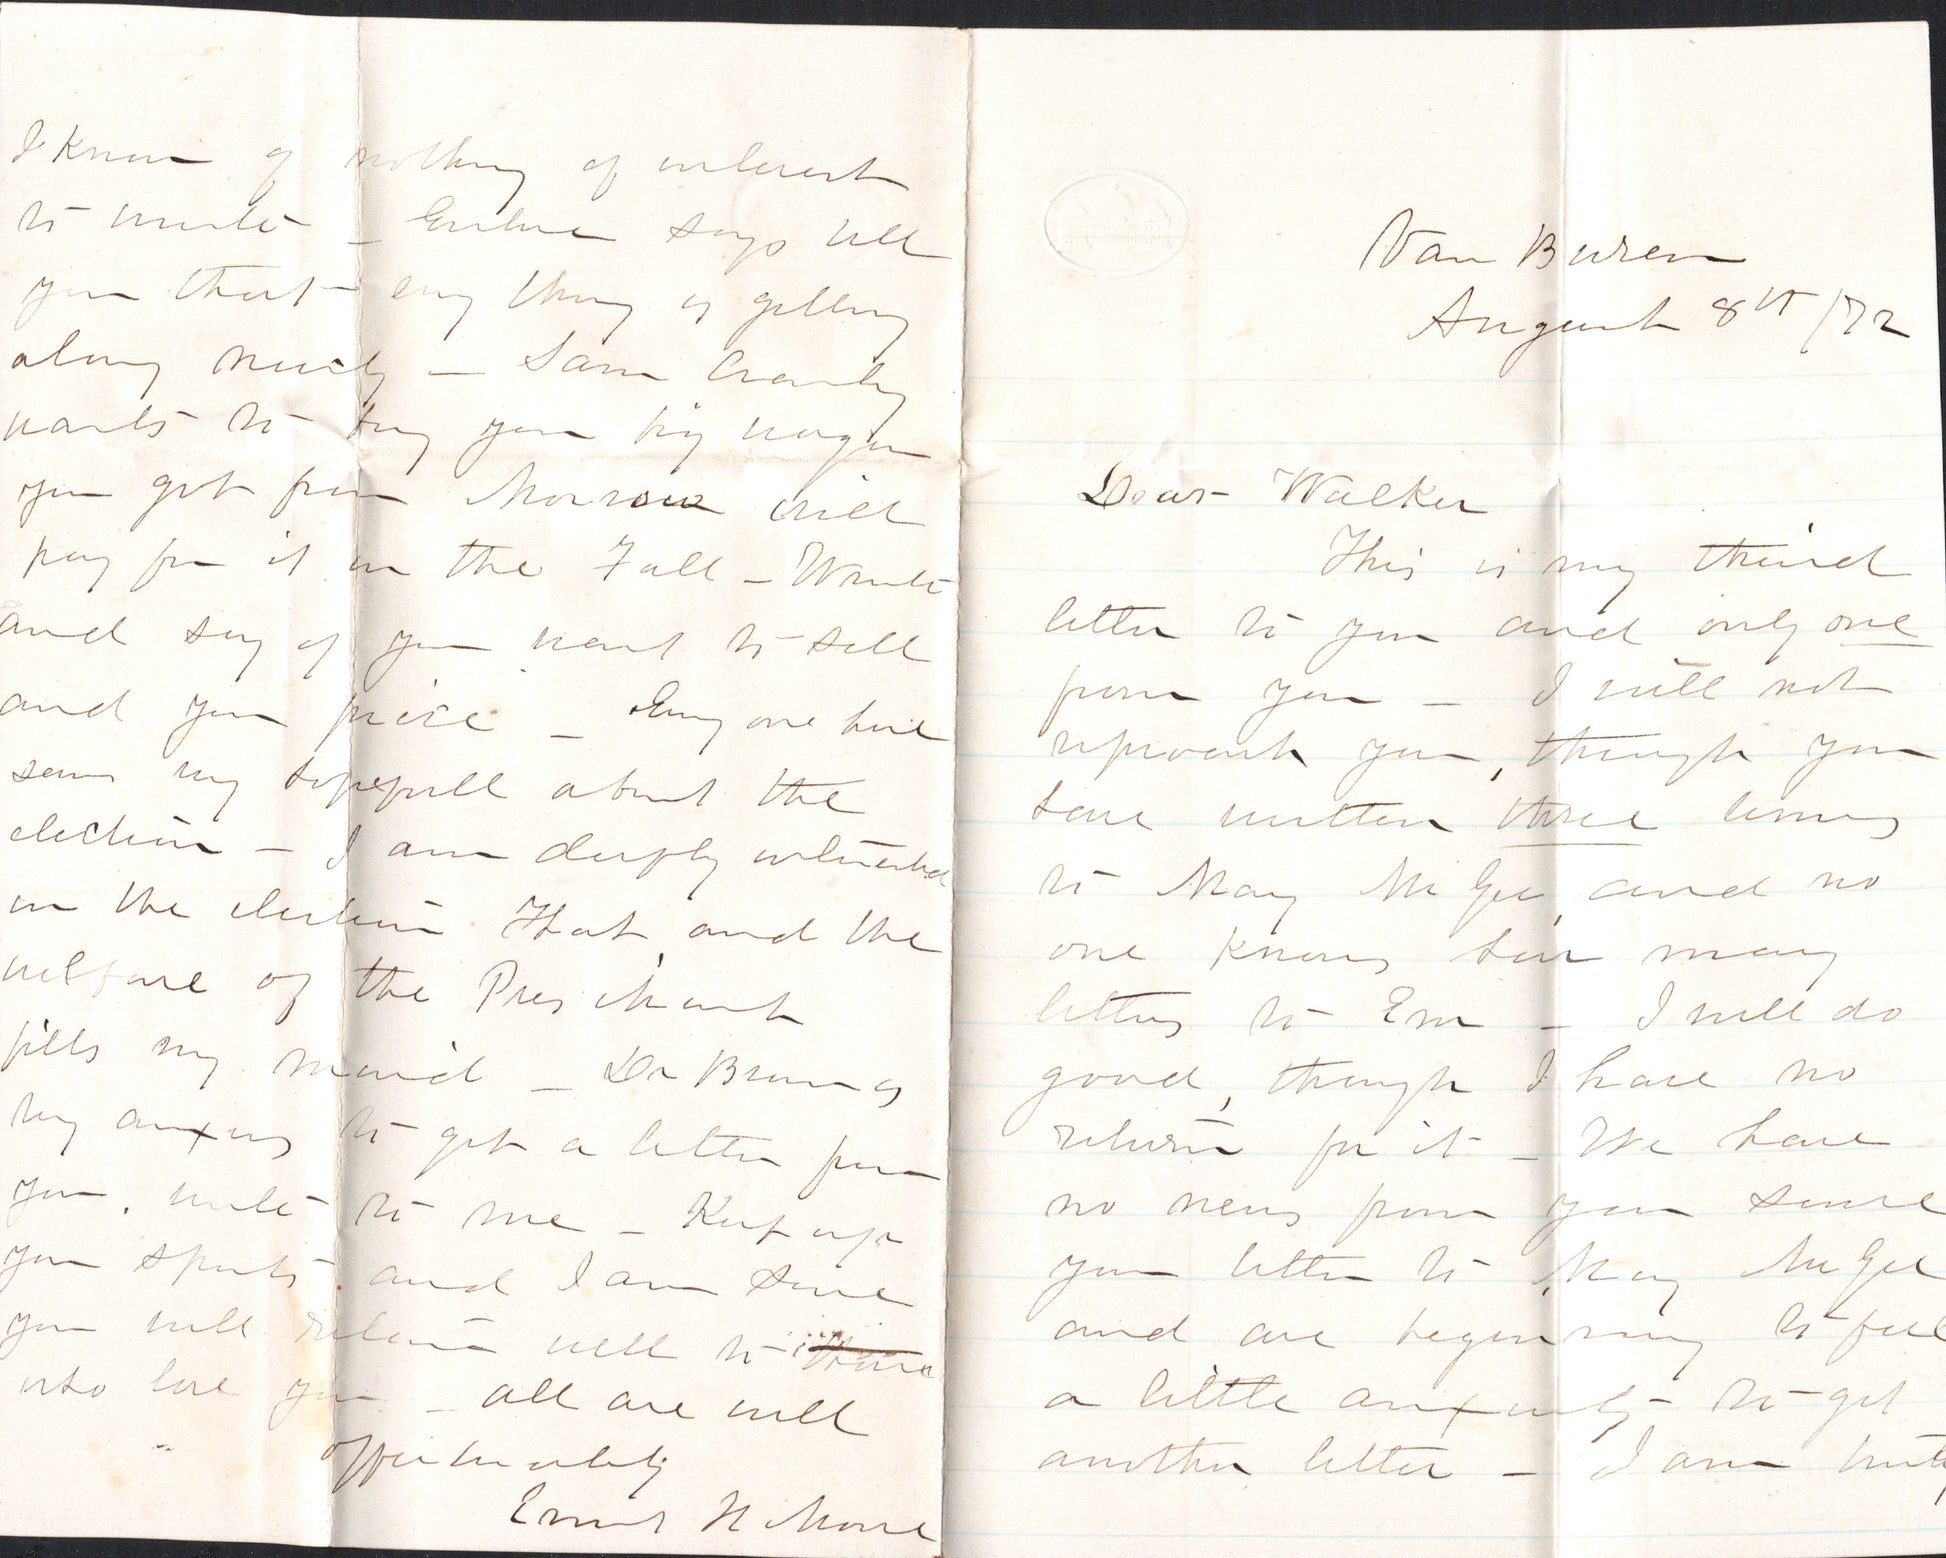 Van Buren
August 8th /72
Dear Walker
This is my third
letter to you and only one
from you – I will not
reproach you, though you
have written three times
to May McGee, and no
one knows how many
letters to Em – I will do
good, though I have no
return for it – We have
no news from you since
your letter to May McGee
and are beginning to feel
a little anxiously to get
another letter – I am truly
I know of nothing of interest
to write – says tell
you that evry thing is getting
along nicely – Sam
wants to buy your big wagon
you got from Morrow will
pay for it in the Fall – Write
and say if you want to sell
and your price – Evry one here
seems vry hopefull about the
election – I am deeply interested
in the election That, and the
welfare of the President
fills my mind – Dr Brown is
vry anxious to get a letter from
you, write to me – Keep up
your spirits and I am sure
you will return well to those
who love you – all are well
affectionately